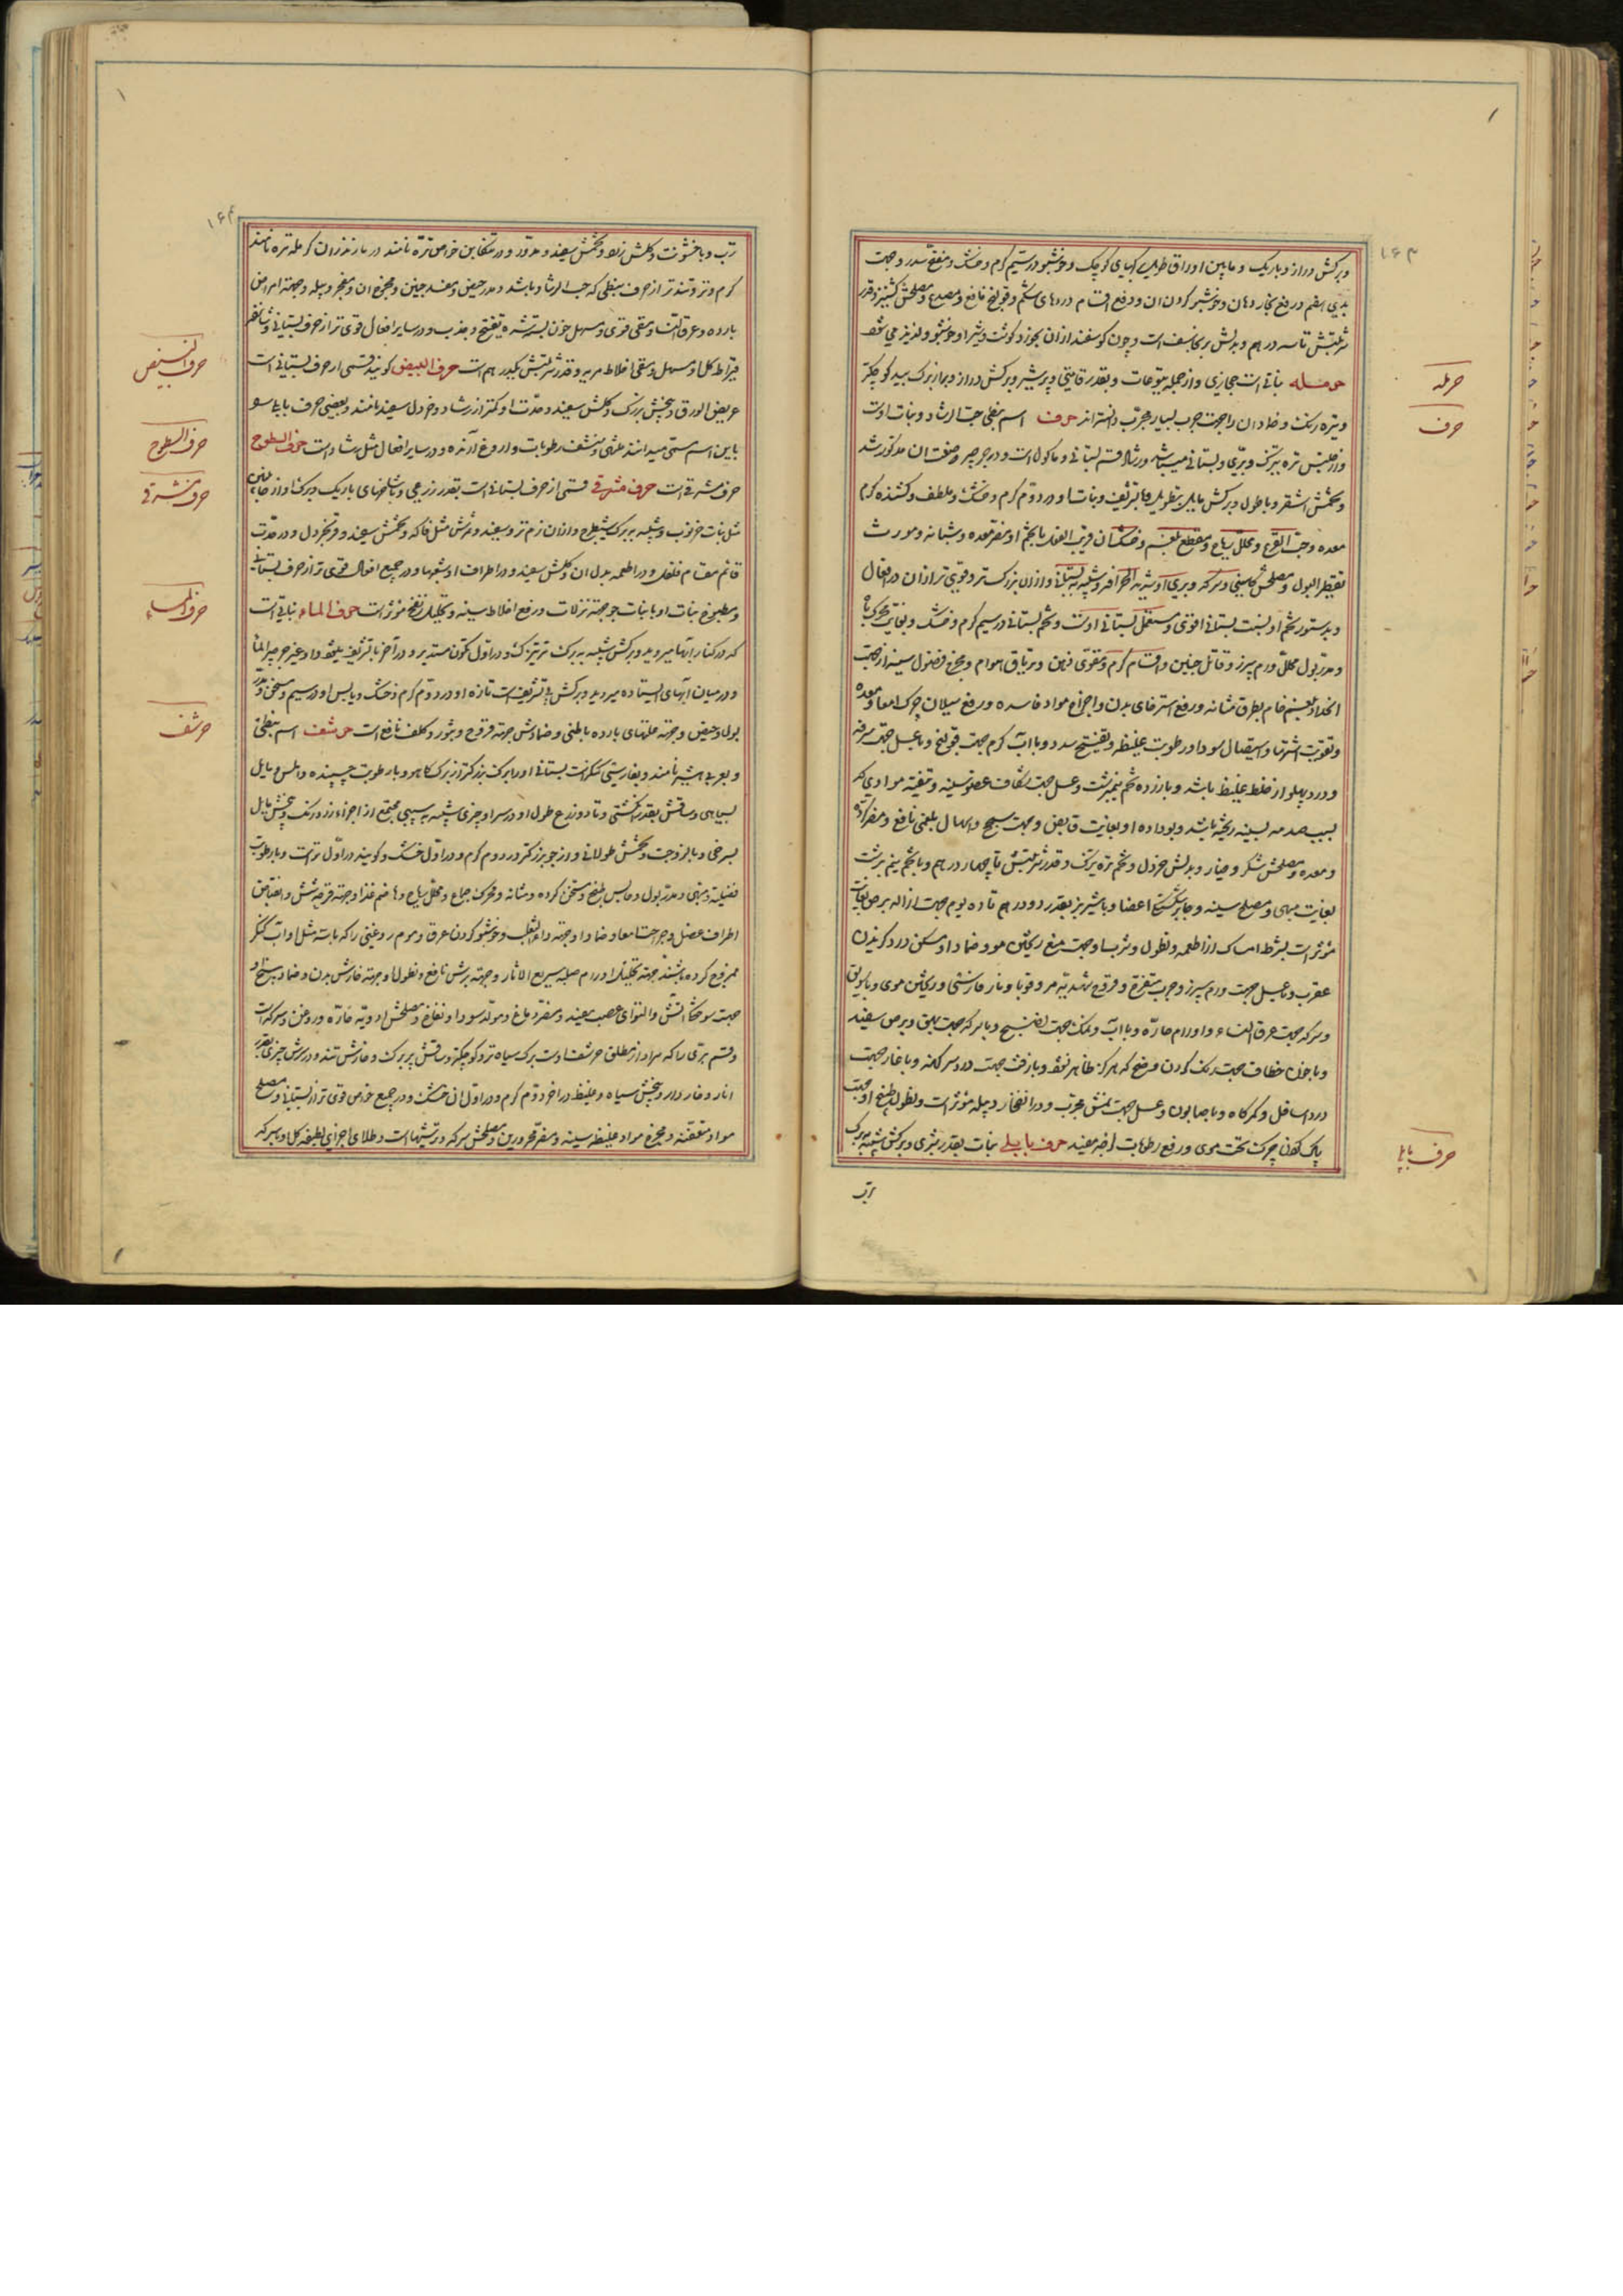 ۱۶۳
وبرکش دراز و باریک و مابین اوراق طرفین کپهای کوچک و خوشبو در سیم کرم و خشک و مفتح سدد و جهت
بدی هضم و رفع بخار دهان و خوشبو کردن ان و رفع اقسام دردهای شکم و قولنج نافع و مصدع و مصلحش کشنیز و قدر
شربتش تا سه درهم و بدلش برنجاسف است و چون کوسفند ازان بچرد کوشت و شیر او خوشبو و لذیذ می شود
حرمله نباتی است حجازی و از جمله یتوعات و بقدر قامتی و پرشیر و برکش دراز و بهتر از برک بید کوچکتر
و تیره رنک و ضماد ان را جهت جرب بسیار مجرب دانسته اند حرف اسم نبطی حب الرشاد و نبات اوست
و از جنس تره تیزک و بری و بستانی میباشد و رشاد قسم بستانی و ماکول است و در جرجیر وصف ان مذکور شد
و تخمش اشقر و با طول و برکش مایل بتطویل و با تشریف و نبات او در دوم کرم و خشک و ملطف و کشنده کرم
معده و حب القرع و محلل ریاح و مقطع بلغم و خشک ان قریب الفعل با تخم او مضر معده و مثانه و مورث
تقطیر البول و مصلحش کاسنی و سرکه و بری او شبیه به بستانی و ازان بزرکتر و قوی تر ازان در افعال
و بدستور تخم او نسبت ببستانی اقوی و مستعمل بستانی اوست و تخم بستانی در سیم کرم و خشک و بغایت محرک باه
و مدر بول محلل ورم سپرز و قاتل جنین و اقسام کرم و مقوی ذهن و تریاق هوام و مخرج فضول سینه از جهت
انحدار بلغم خام بطرق مثانه و رفع استرخای بدن و اخراج مواد فاسده و رفع سیلان چرک امعا و معده
و تقویت اشتها و اسهال سودا و رطوبت غلیظه و تفتیح سدد و با آب کرم جهت قولنج و با عسل جهت سرفه
و درد پهلو از خلط غلیظ باشد و با زرده تخم نیمبرشت و عسل جهت شکاف عضو سینه و تنقیه موادی که
بسبب صدمه بسینه ریخته باشد و بوداده او بغایت قابض و جهت سحج و اسهال بلغمی نافع و مضر کرده
و معده و مصلحش شکر و خیار و بدلش خردل و تخم تره تیزک و قدر شربتش تا چهار درهم و با تخم نیم برشت
بغایت مبهی و مصلح سینه و جابر شکستکی اعضا و با شیر بز بقدر دو درهم تا ده یوم جهت ازاله برص بغایت
مؤثر است بشرط امساک از اطعمه و نطول و شرب او جهت منع ریختن مو و ضماد او مسکن درد کزیدن
عقرب و با عسل جهت ورم سپرز و جرب متقرح و قروح شهدیه سر و قوبا و نار فارسی و ریختن موی و با سویق
و سرکه جهت عرق النساء و اورام حاره و با آب و نمک جهت نضج و با سرکه جهت بهق و برص سفید
و با خون خطاف جهت رنک کردن وضح که هرکز ظاهر نشود و با زفت جهت درد سر کهنه و با غار جهت
درد اسافل و کمرکاه و با صابون و عسل جهت نمش مجرب و در انفجار دبیله مؤثر است و نطول طبیخ او جهت
پاک کردن چرک تحت موی و رفع رطوبات لزجه مفید حرف بابلی نبات بقدر شبری و برکش شبیه ببرک
ترب
حرمله
حرف
حرف بابلی
۱۶۴
ترب و با خشونت و کلش زرد و تخمش سفید و مدور و در تنکابن خواص تره نامند در مازندران کرمله تره نامند
کرم و تر و تندتر از حرف نبطی که حب الرشاد باشد و مدر حیض و مفسد جنین و مخرج ان و مفجر دبیله و جهة امراض
بارده و عرق النسا و مقی قوی و مسهل خون بسته شده بتفتیح و جذب و در سایر افعال قوی تر از حرف بستانی
قیراط کل او مسهل و مقی اخلاط مریه و قدر شربتش یکدرهم است حرف البیض کویند قسمی از حرف بستانی است
عریض الورق و بیخش بزرک و کلش سفید و حدت او کمتر از رشاد و خردل سفید نامند و بعضی حرف بابلی سو
باین اسم مسمی میدانند مشهی و منشف رطوبات و اروغ آرنده و در سایر افعال مثل رشاد است حرف السطوح
حرف مشرقی است حرف مشرقی قسمی از حرف بستانی است بقدر زرعی و با شاخهای باریک و برک او از جانبین
مثل نبات خرنوب و شبیه ببرک شیطرج و ازان نرم تر و سفید و ثمرش مثل فاکه و تخمش سفید و قریب بخردل و در حدت
قائم مقام فلفل و در اطعمه بدل ان و کلش سفید و در اطراف او شعبها و در جمیع افعال قوی تر از حرف بستانی
و مطبوخ نبات او با نبات جو جهة نزلات و رفع اخلاط سینه و تحلیل نفخ مؤثر است حرف الماء نباتی است
که در کنار آبها میروید و برکش شبیه ببرک ترتیزک و در اول تکون مستدیر و در آخر با تشریف میشود و او غیر جرجیر الماء
و در میان آبهای ایستاده میروید و برکش با تشریف است تازه او در دوم کرم و خشک و یابس او در سیم و مسخن و مدر
بول و حیض و جهة علتهای بارده باطنی و ضمادش جهة قروح و بثور و کلف نافع است حرشف اسم نبطی
و بعربی هیشر نامند و بفارسی کنکر است بستانی او را برک بزرکتر از برک کاهو و با رطوبت چسبنده و املس و مایل
بسیاهی و ساقش بقدر انکشتی و تا دو ذرع طول او در سر او چیزی شبیه به سیبی مجتمع از اجزاء زرد رنک و بیخش مایل
بسرخی و با لزوجت و تخمش طولانی و از جو بزرکتر در دوم کرم و در اول خشک و کویند در اول تر است و با رطوبت
فضلیه و مبهی و مدر بول و حابس طبع و مسخن کرده و مثانه و محرک جماع و محلل ریاح و هاضم غذا و جهة قرحه شش و انقباض
اطراف عضل و جراحت امعا و ضماد او جهة داء الثعلب و خوشبو کردن عرق و موم روغنی را که با سه مثل او آب کنکر
ممزوج کرده باشند جهة تحلیل اورام صلبه سریع الاثار و جهة برش نافع و نطول او جهة خارش بدن و ضماد بیخ او
جهت سوختکی آتش و التوای عصب مفید و مضر دماغ و مولد سودا و نفاخ و مصلحش ادویه حاره و روغن و سرکه است
و قسم بری را که مراد از مطلق حرشف اوست برک سیاه تر و کوچکتر و ساقش پر برک و خارش تند و در سرش چیزی بقدر
انار و خاردار و بیخش سیاه و غلیظ در اخر دوم کرم و در اول ان خشک و در جمیع خواص قوی تر از بستانی و مصلح
مواد متعفنه و مخرج مواد غلیظه سینه و مضر محرورین و مصلحش سرکه و ترشیها است و طلای اجزای لطیفه کل او با سرکه
حرف البیض
حرف السطوح
حرف مشرقی
حرف الماء
حرشف